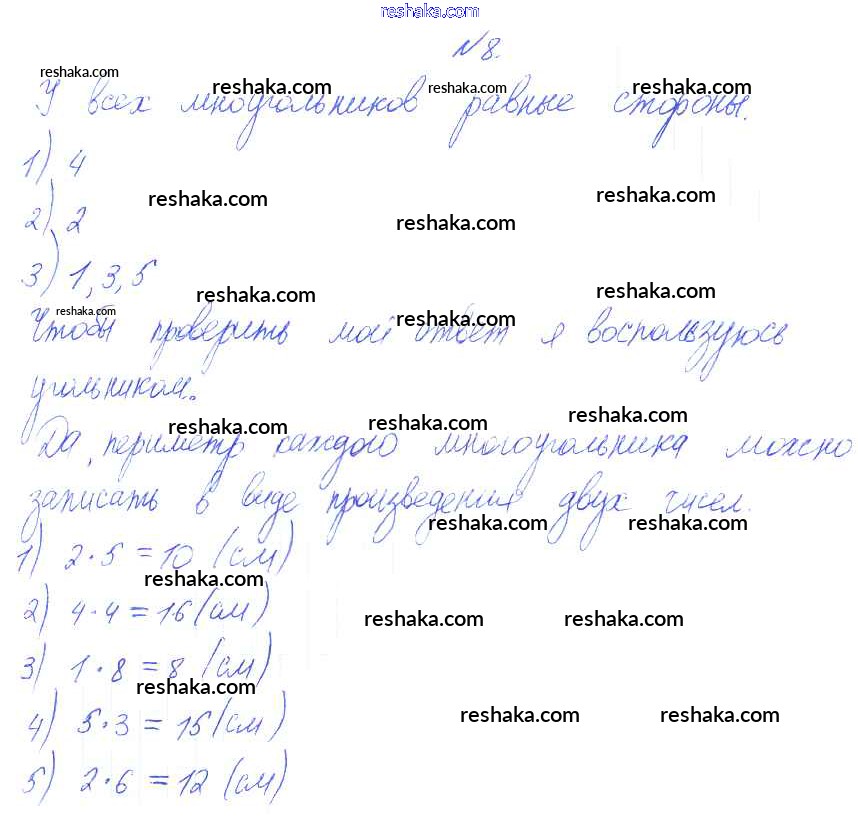 reshaka.com
№8.
reshaka.com
reshaka.com reshaka.com reshaka.com
У всех многоугольников равные стороны.
1) 4
reshaka.com reshaka.com
2) 2
reshaka.com
3) 1, 3, 5
reshaka.com reshaka.com
reshaka.com reshaka.com
Чтобы проверить мой ответ я воспользуюсь
угольником.
reshaka.com reshaka.com reshaka.com
Да, периметр каждого многоугольника можно
записать в виде произведения двух чисел.
reshaka.com reshaka.com
1) 2·5=10 (см)
reshaka.com
2) 4·4=16 (см)
reshaka.com reshaka.com
3) 1·8=8 (см)
reshaka.com
4) 5·3=15 (см)
reshaka.com reshaka.com
5) 2·6=12 (см)